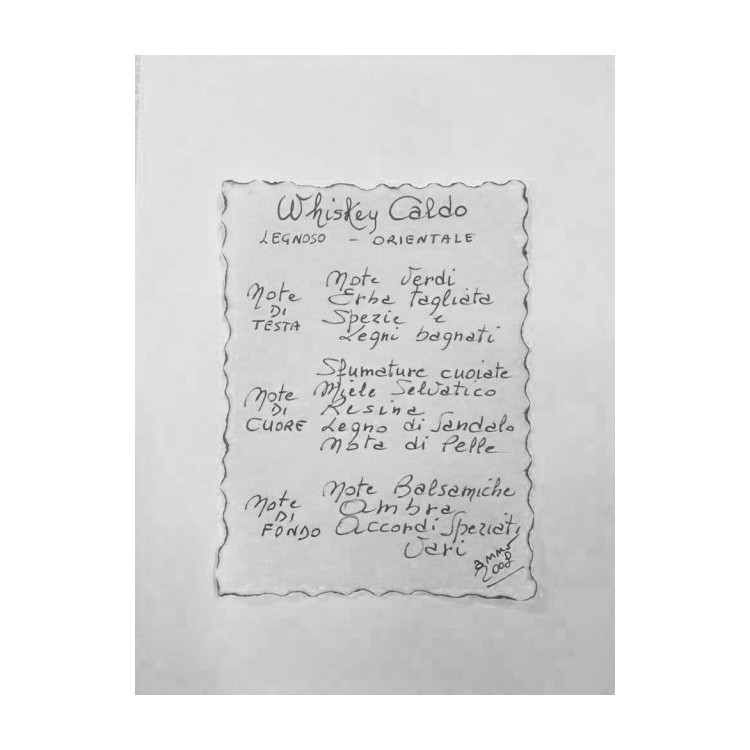 Whiskey Caldo
LEGNOSO - ORIENTALE
Note
DI
TESTA
Note Verdi
Erba tagliata
Spezie e
Legni bagnati
Note
DI
CUORE
Sfumature cuoiate
Miele Selvatico
Resina
Legno di Sandalo
Nota di Pelle
Note
DI
FONDO
Note Balsamiche
Ambra
Accordi Speziati
Vari
2008